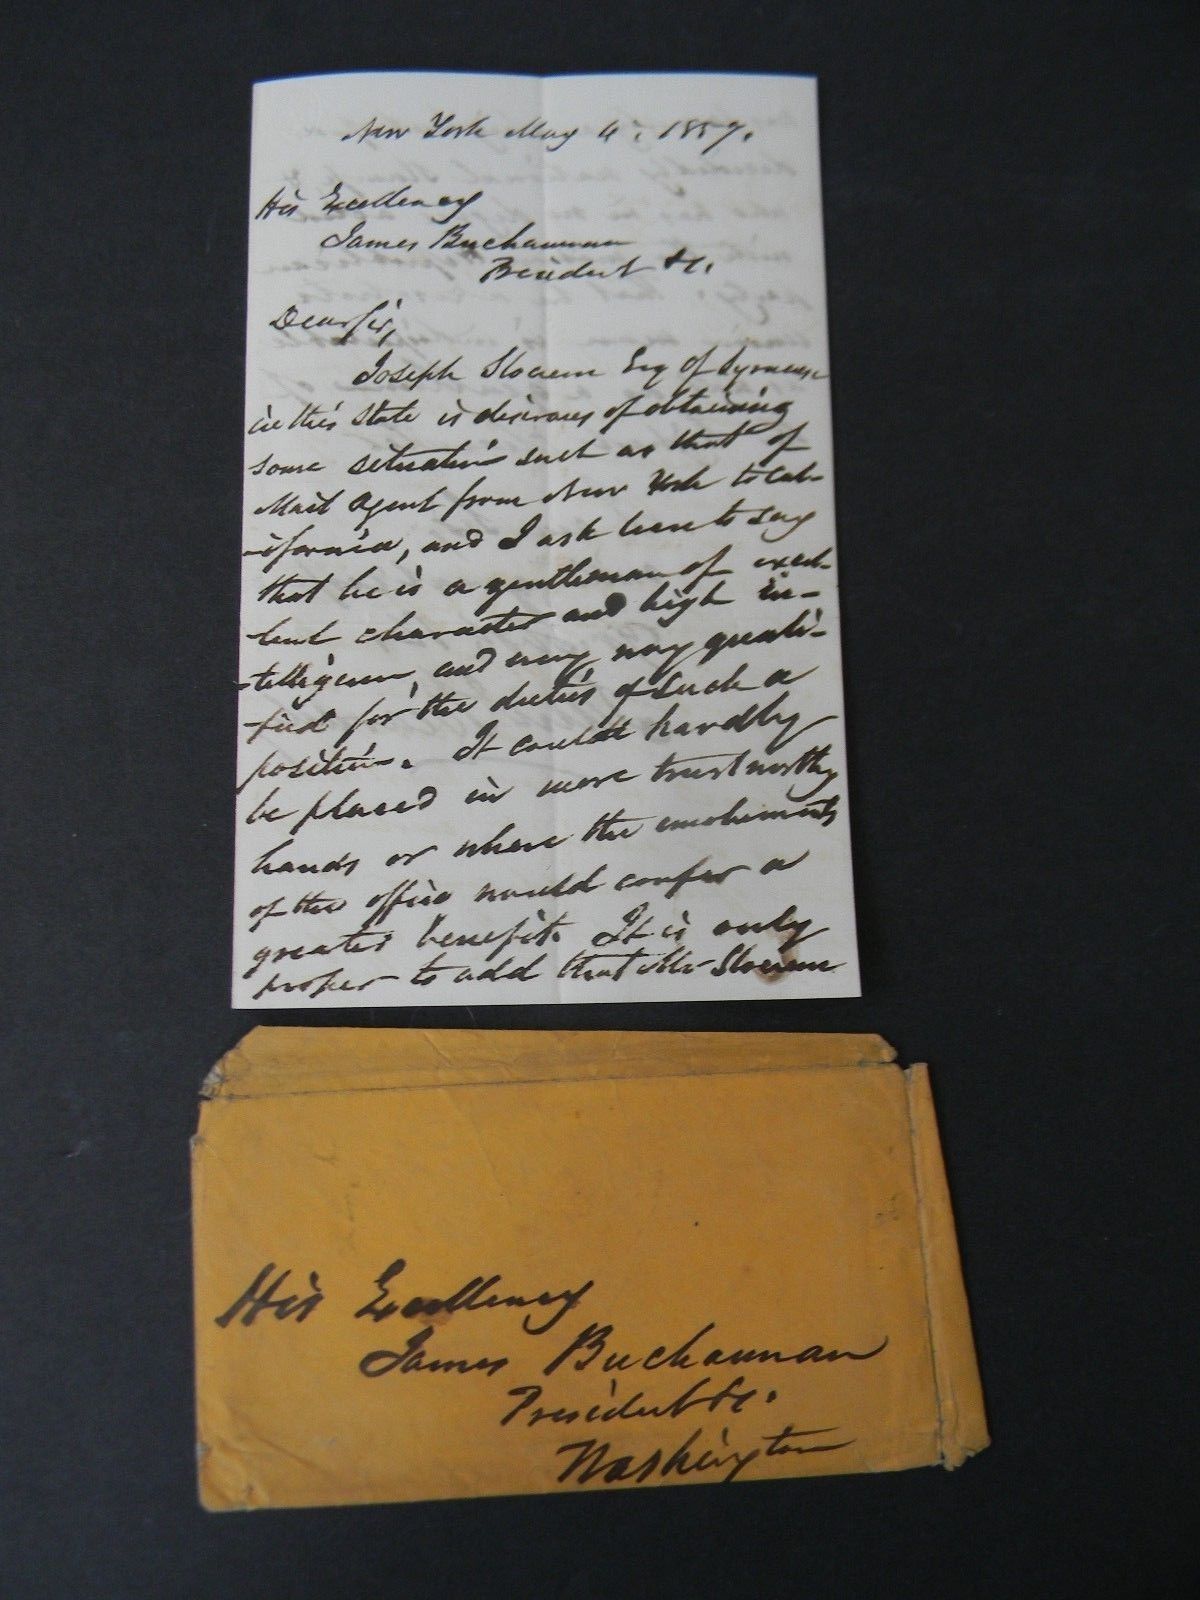 New York May 4, 1857.
His Excellency
James Buchannan
President &c.
Dear Sir,
Joseph Slocum Esq of Syracuse
in this State is desirous of obtaining
some situation such as that of
Mail Agent from New York to Cal-
-ifornia, and I ask leave to say
that he is a gentleman of excel-
lent character and high in-
-telligence and every way quali-
-fied for the duties of such a
position. It could hardly
be placed in more trustworthy
hands or where the emoluments
of the office would confer a
greater benefit. It is only
proper to add that Mr Slocum
His Excellency
James Buchannan
President &c.
Washington